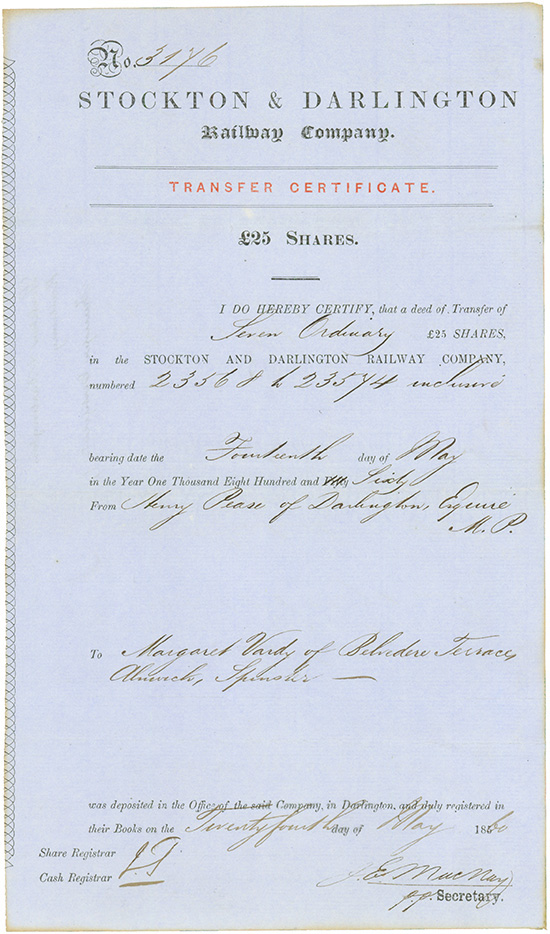 No. 3176
STOCKTON & DARLINGTON
Railway Company.
TRANSFER CERTIFICATE.
£25 SHARES.
I DO HEREBY CERTIFY, that a deed of Transfer of
Seven Ordinary £25 SHARES,
in the STOCKTON AND DARLINGTON RAILWAY COMPANY,
numbered 23568 to 23574 inclusive
bearing date the Fourteenth day of May
in the Year One Thousand Eight Hundred and Fifty Sixty
From Henry Pease of Darlington, Esquire
M.P.
To Margaret Vardy of Belvedere Terrace,
Alnwick, Spinster —
was deposited in the Office of the said Company, in Darlington, and duly registered in
their Books on the Twenty fourth day of May 1860
Share Registrar
Cash Registrar J.T.
J. E. MacNay
pp. Secretary.